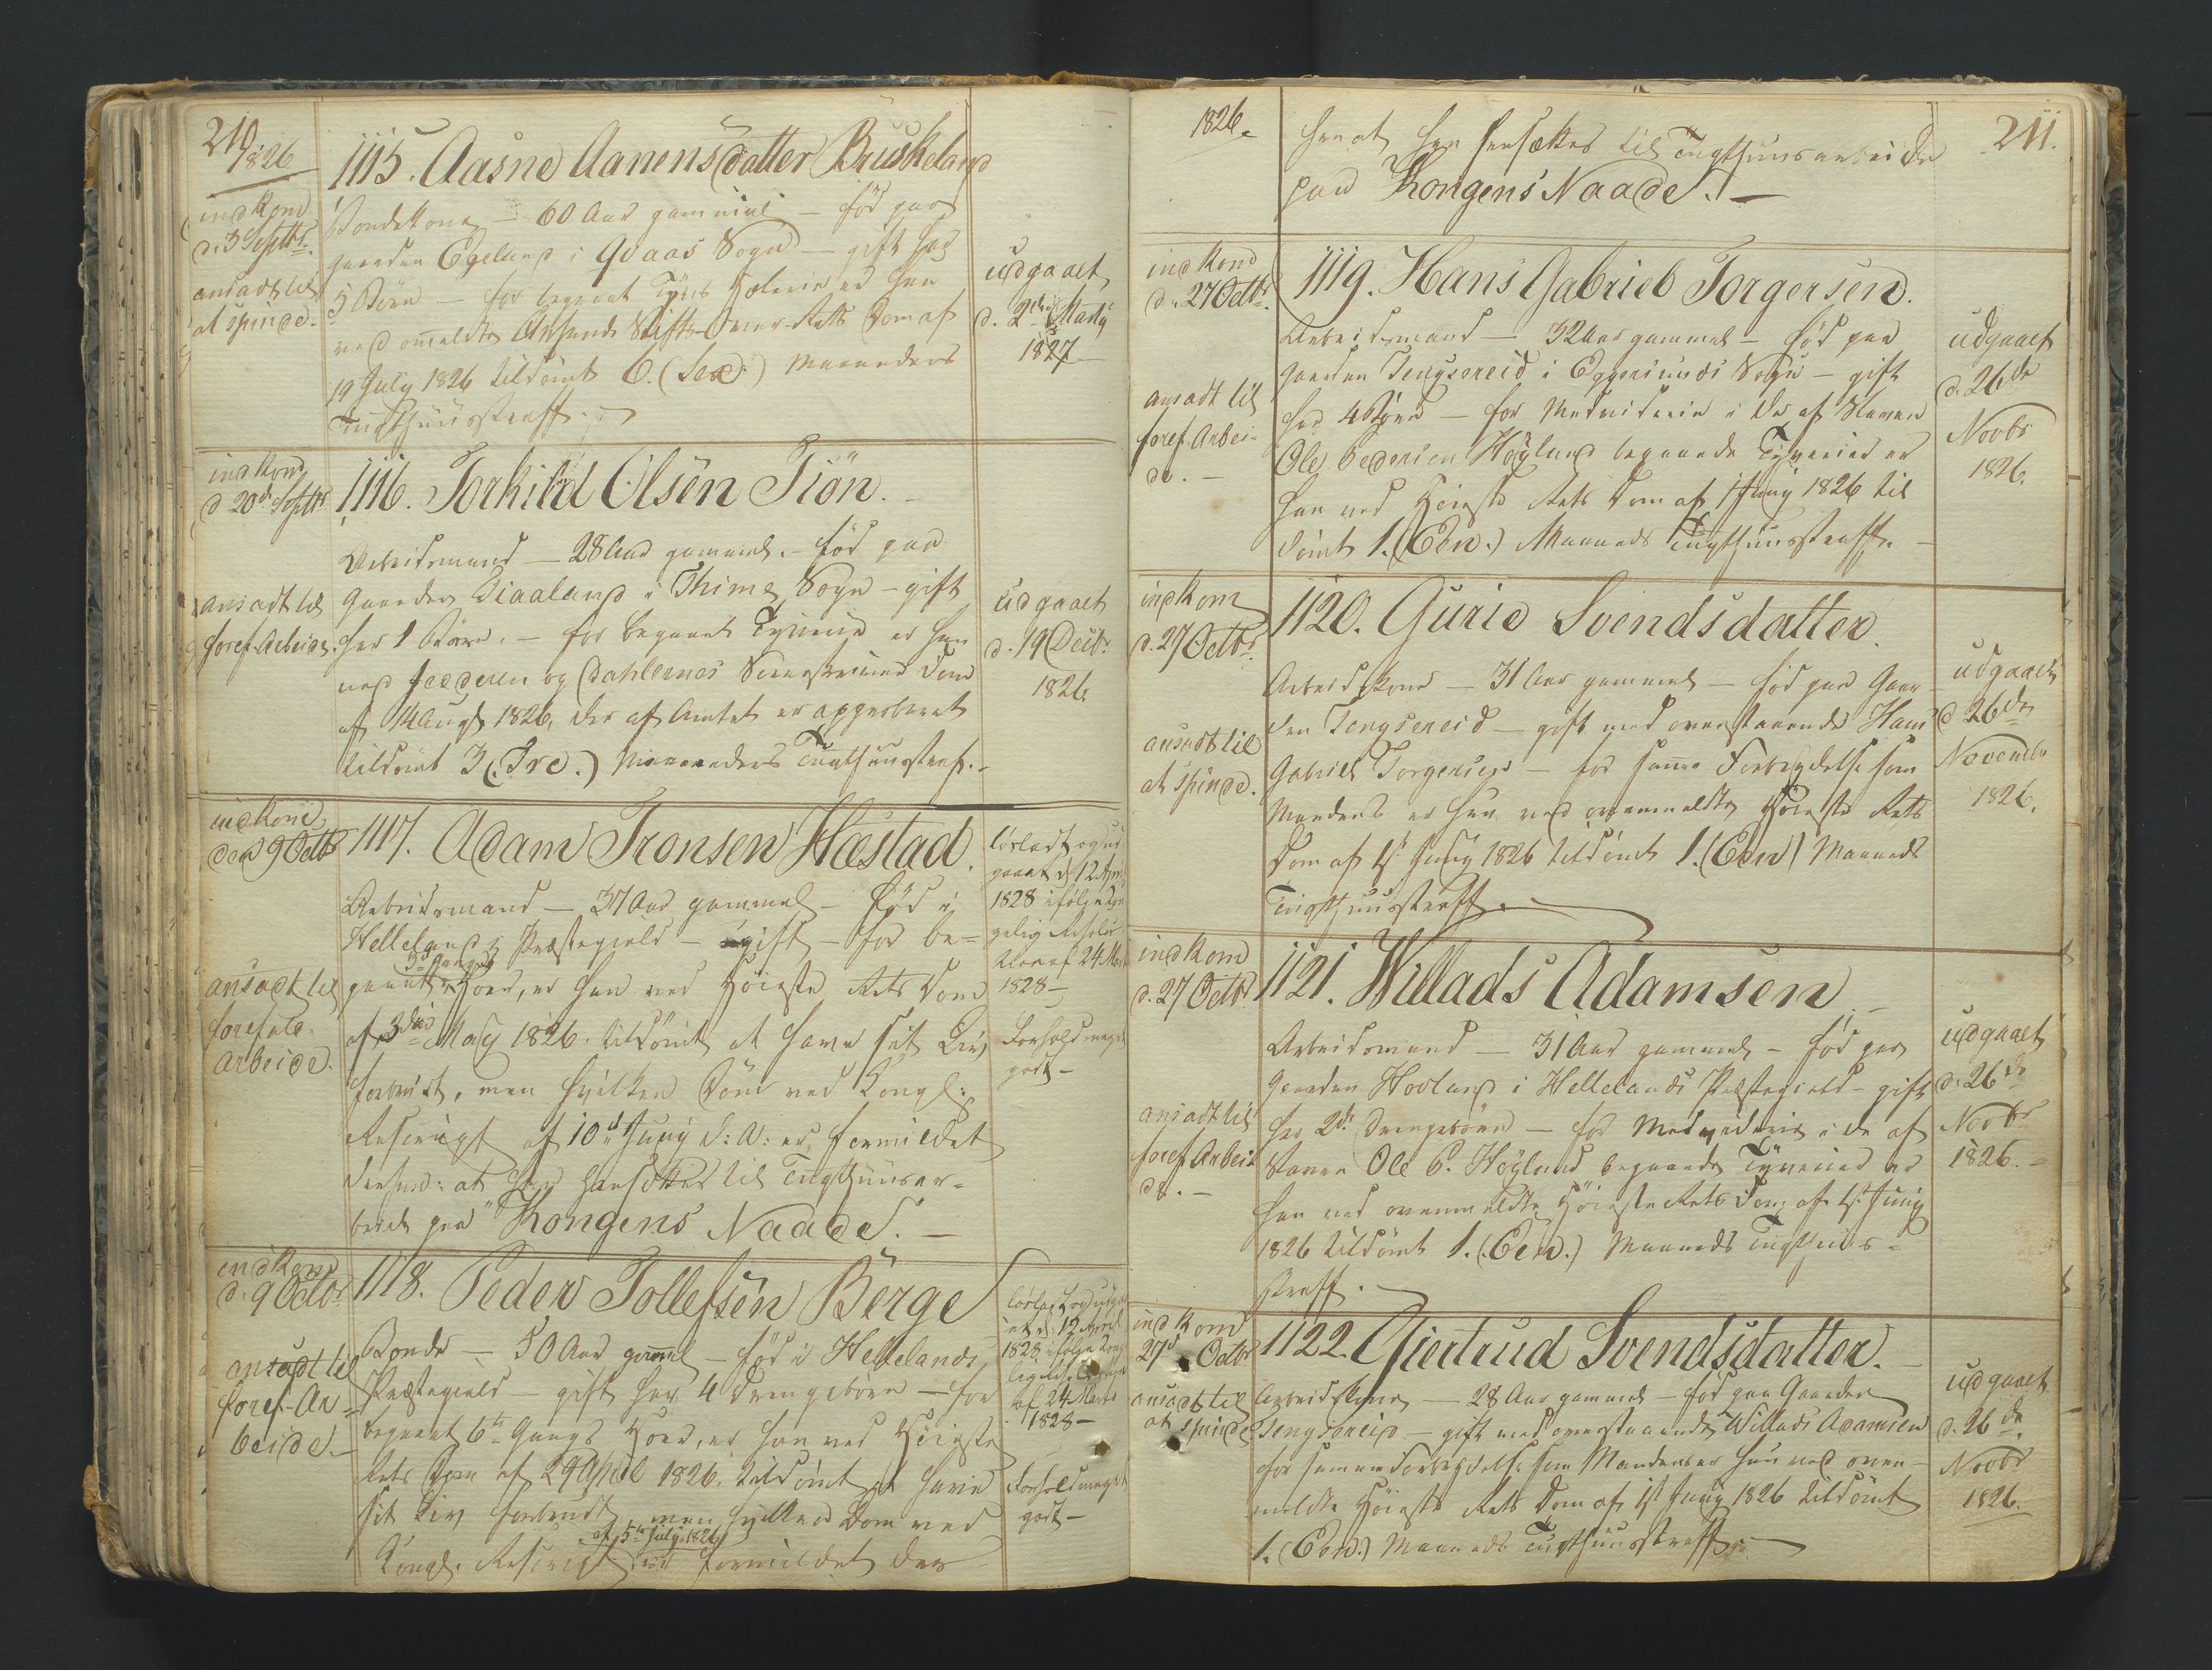 210
1826
indkom
d. 3 Septbr.
ansadt til
at spinde.
1115. Aasne Aanensdatter Buskeland
Bondekone – 60 Aar gammel – föd paa
Gaarden Egeland i Qvaas Sogn – gift har
5 Börn – for begaaet Tyvs Hælerie er hun
ved ommeldte Stifts-Over-Rets Dom af
19 July 1826 tildömt 6. (Sex) Maaneders
Tugthuusstraff. –
udgaaet
d. 2den Martz
1827. –
indkom
d. 20de Septbr
ansadt til
foref. Arbeide.
1116. Torkild Olsen Tiön. –
Arbeidsmand – 28 Aar gammel. – föd paa
Gaarden Tiaaland i Thime Sogn – gift
har 1 Barn. – for begaaet Tyverie er han
ved Jedderen og Dahlernes Sorenskriver Dom
af 14 Augst 1826, der af Amtet er approberet
tildömt 3 (Tre.) Maaneders Tugthuusstraf. –
udgaaet
d. 19 Decbr
1826.
indkom
den 9 Octbr
ansadt til
forefald.
Arbeide.
1117. Adam Tronsen Hæstad.
Arbeidsmand – 37 Aar gammel – föd i
Hellelands Præstegield – ugift – for be-
gaaet 3die Gangs Hoer, er han ved Höieste Rets Dom
af 3die May 1826. tildömt at have sit Liv
forbrudt, men hvilken Dom ved Kongl:
Rescript af 10de Juny d: A: er formildet
derhen: at han hensættes til Tugthuusar-
beide paa "Kongens Naade". –
lösladt og ud-
gaaet d. 12 April
1828 ifölge Kon-
gelig Resolu-
tion af 24 Marts
1828 –
Forhold meget
godt –
indkom
d. 9 Octbr
ansadt til
foref. Ar-
beide. –
1118. Peder Tollefsen Berge
Bonde – 50 Aar gammel – föd i Hellelands
Præstegield – gift har 4 Drengebörn – for
begaaet 6te Gangs Hoer, er han ved Höieste
Rets Dom af 29 April 1826. tildömt at have
sit Liv forbrudt, men hvilken Dom ved
Kongl. Rescript af 5te July 1826 er formildet der-
lösladt og udga-
aet d. 12 April
1828 ifölge Kon-
af 24 Marts
1828 –
Forhold meget
godt –
1826.
211.
hen at han hensættes til Tugthuusarbeide
paa Kongens Naade. –
indkom
d. 27 Octbr.
ansadt til
foref. Arbei-
de. –
1119. Hans Gabriel Torgersen.
Arbeidsmand – 32 Aar gammel – föd paa
Gaarden Tengsereid i Eggersunds Sogn – gift
har 4 Börn – for Medviderie i de af Slaven
Ole Pedersen Höyland begaaede Tyverier er
han ved Höieste Rets Dom af 1st Juny 1826 til
dömt 1. (Een.) Maaneds Tugthuusstraff. –
udgaaet
d. 26de
Novbr
1826.
indkom
d. 27 Octbr.
ansadt til
at spinde.
1120. Gurie Svendsdatter.
Arbeidskone – 31 Aar gammel – föd paa Gaar-
den Tengsereid – gift med ovenstaaende Hans
Gabriel Torgersen – for samme Forbrydelse som
Mandens er hun ved ovenmeldte Höieste Rets
Dom af 1st Juny 1826 tildömt 1. (Een) Maaneds
Tugthuusstraff. –
udgaaet
d. 26de
November
1826.
indkom
d. 27 Octbr
ansadt til
foref. Arbei-
de. –
1121. Willads Adamsen. –
Arbeidsmand – 31 Aar gammel – föd paa
Gaarden Hovland i Hellelands Præstegield – gift
har 2de Drengebörn – for Medviderie i de af
Slaven Ole P. Höyland begaaede Tyverier er
han ved ovenmeldte Höieste Rets Dom af 1st Juny
1826 tildömt 1. (Een.) Maaneds Tugthuus-
straff. –
udgaaet
d. 26de
Novbr
1826. –
indkom
27d Octbr
ansadt til
at spinde
1122. Giertrud Svendsdatter. –
Arbeidskone – 28 Aar gammel – föd paa Gaarden
Tengsereid – gift med ovenstaaende Willads Adamsen
for samme Forbrydelse som Mandens er hun ved oven-
meldte Höieste Rets Dom af 1st Juny 1826 tildömt
1. (Een.) Maaneds Tugthuusstraff. –
udgaaet
d. 26de.
Novbr
1826.